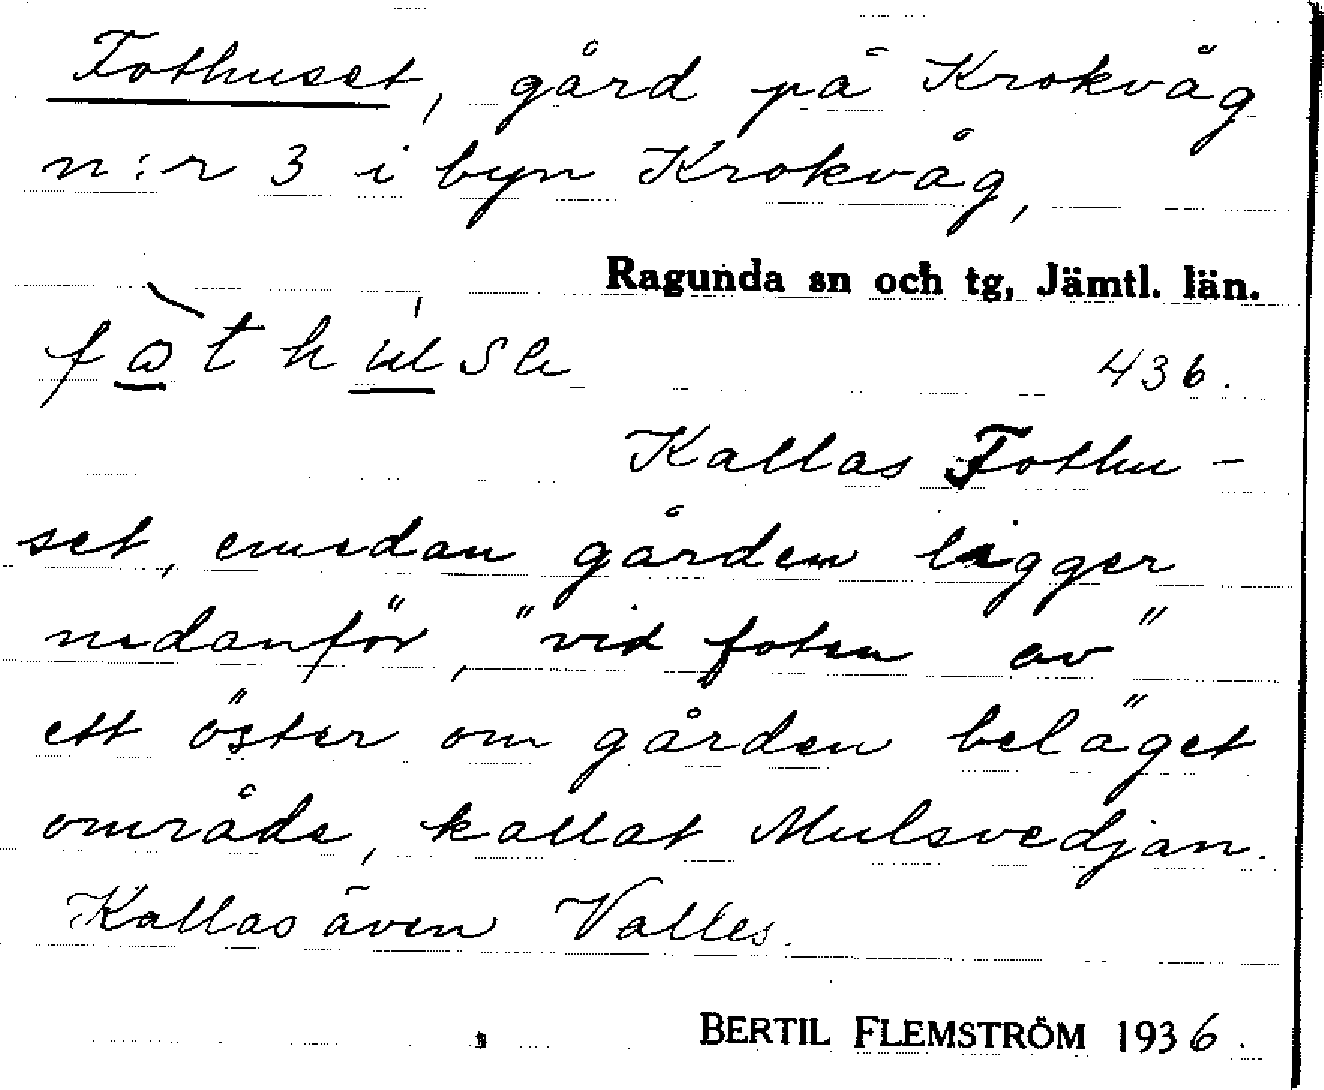 Fothuset, gård på Krokvåg
n:r 3 i byn Krokvåg,
Ragunda sn och tg, Jämtl. län.
436.
Kallas Fothu-
set, emedan gården ligger
nedanför, "vid foten av"
ett öster om gården beläget
område, kallat Mulsvedjan.
Kallas även Valles.
BERTIL FLEMSTRÖM 1936.